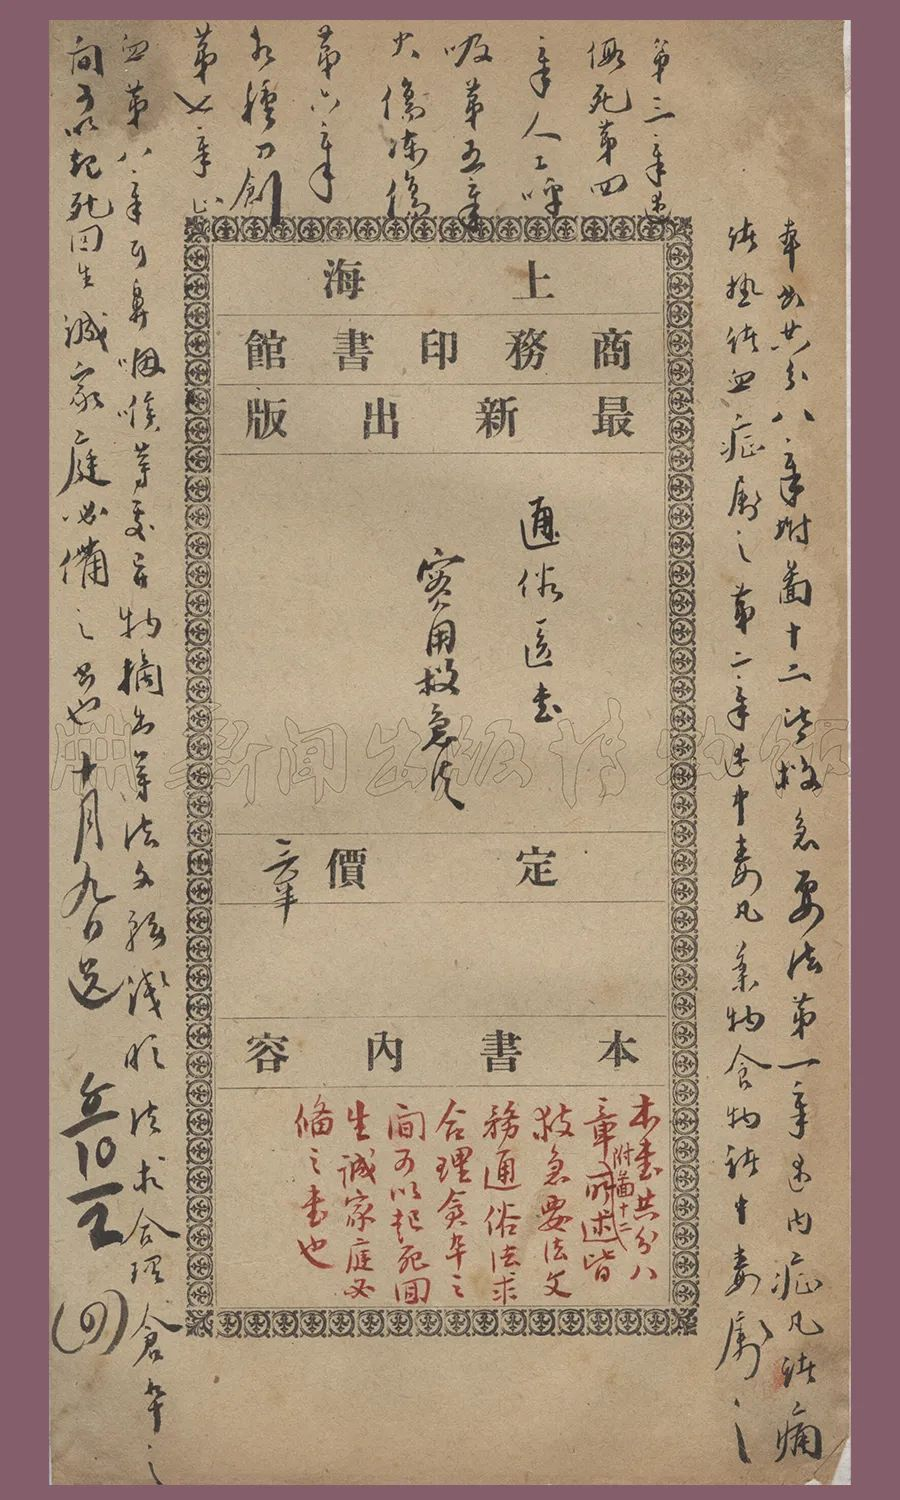 本書共分八章附圖十二皆救急要法第一章述內症凡諸痛
諸熱諸血症屬之第二章述中毒凡藥物食物諸中毒屬之
第三章述
假死第四
章人工呼
吸第五章
火傷凍傷
第六章
刀創
第七章止
血第八章耳鼻咽喉等處異物摘出等法文務淺顯法求合理倉卒之
間可以起死回生誠家庭必備之書也十月九日送
10
(四)
上海
商務印書館
最新出版
通俗醫書
實用救急法
定價
本書內容
本書共分八
章附圖十二所述皆
救急要法文
務通俗法求
合理倉卒之
間可以起死回
生誠家庭必
備之書也
新聞出版博物館